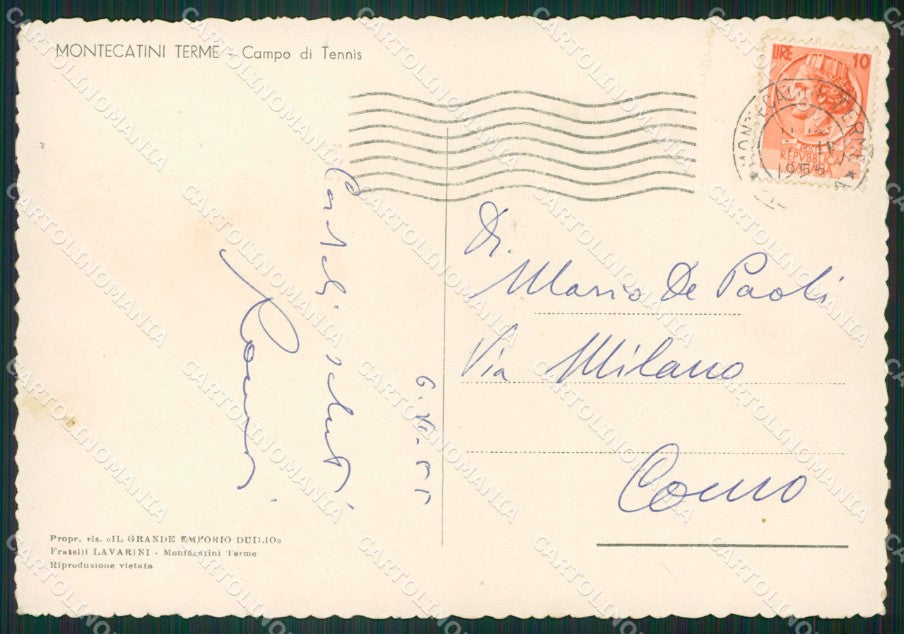 MONTECATINI TERME - Campo di Tennis
LIRE 10
REPVBBLICA
ITALIANA
MONTECATINI TERME
1955
Cordiali saluti
6. VI. 55
Dr.
Mario De Paoli
Via Milano
Como
Propr. ris. «IL GRANDE EMPORIO DUILIO»
Fratelli LAVARINI - Montecatini Terme
Riproduzione vietata
CARTOLINOMANIA